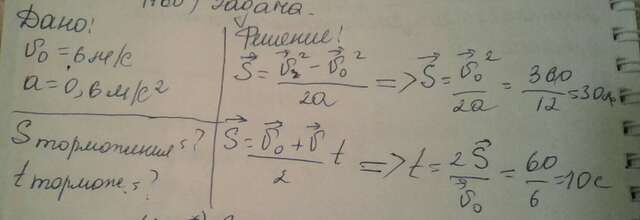 Задача.
Дано:
υ₀ = 6 м/с
a = 0,6 м/с²
S торможения = ?
t торможе. = ?
Решение:
S⃗ = (υ⃗² - υ⃗₀²)/2a => S⃗ = υ⃗₀²/2a = 360/12 = 30м
S⃗ = (υ⃗₀ + υ⃗)/2 t => t = 2S⃗/υ⃗₀ = 60/6 = 10с